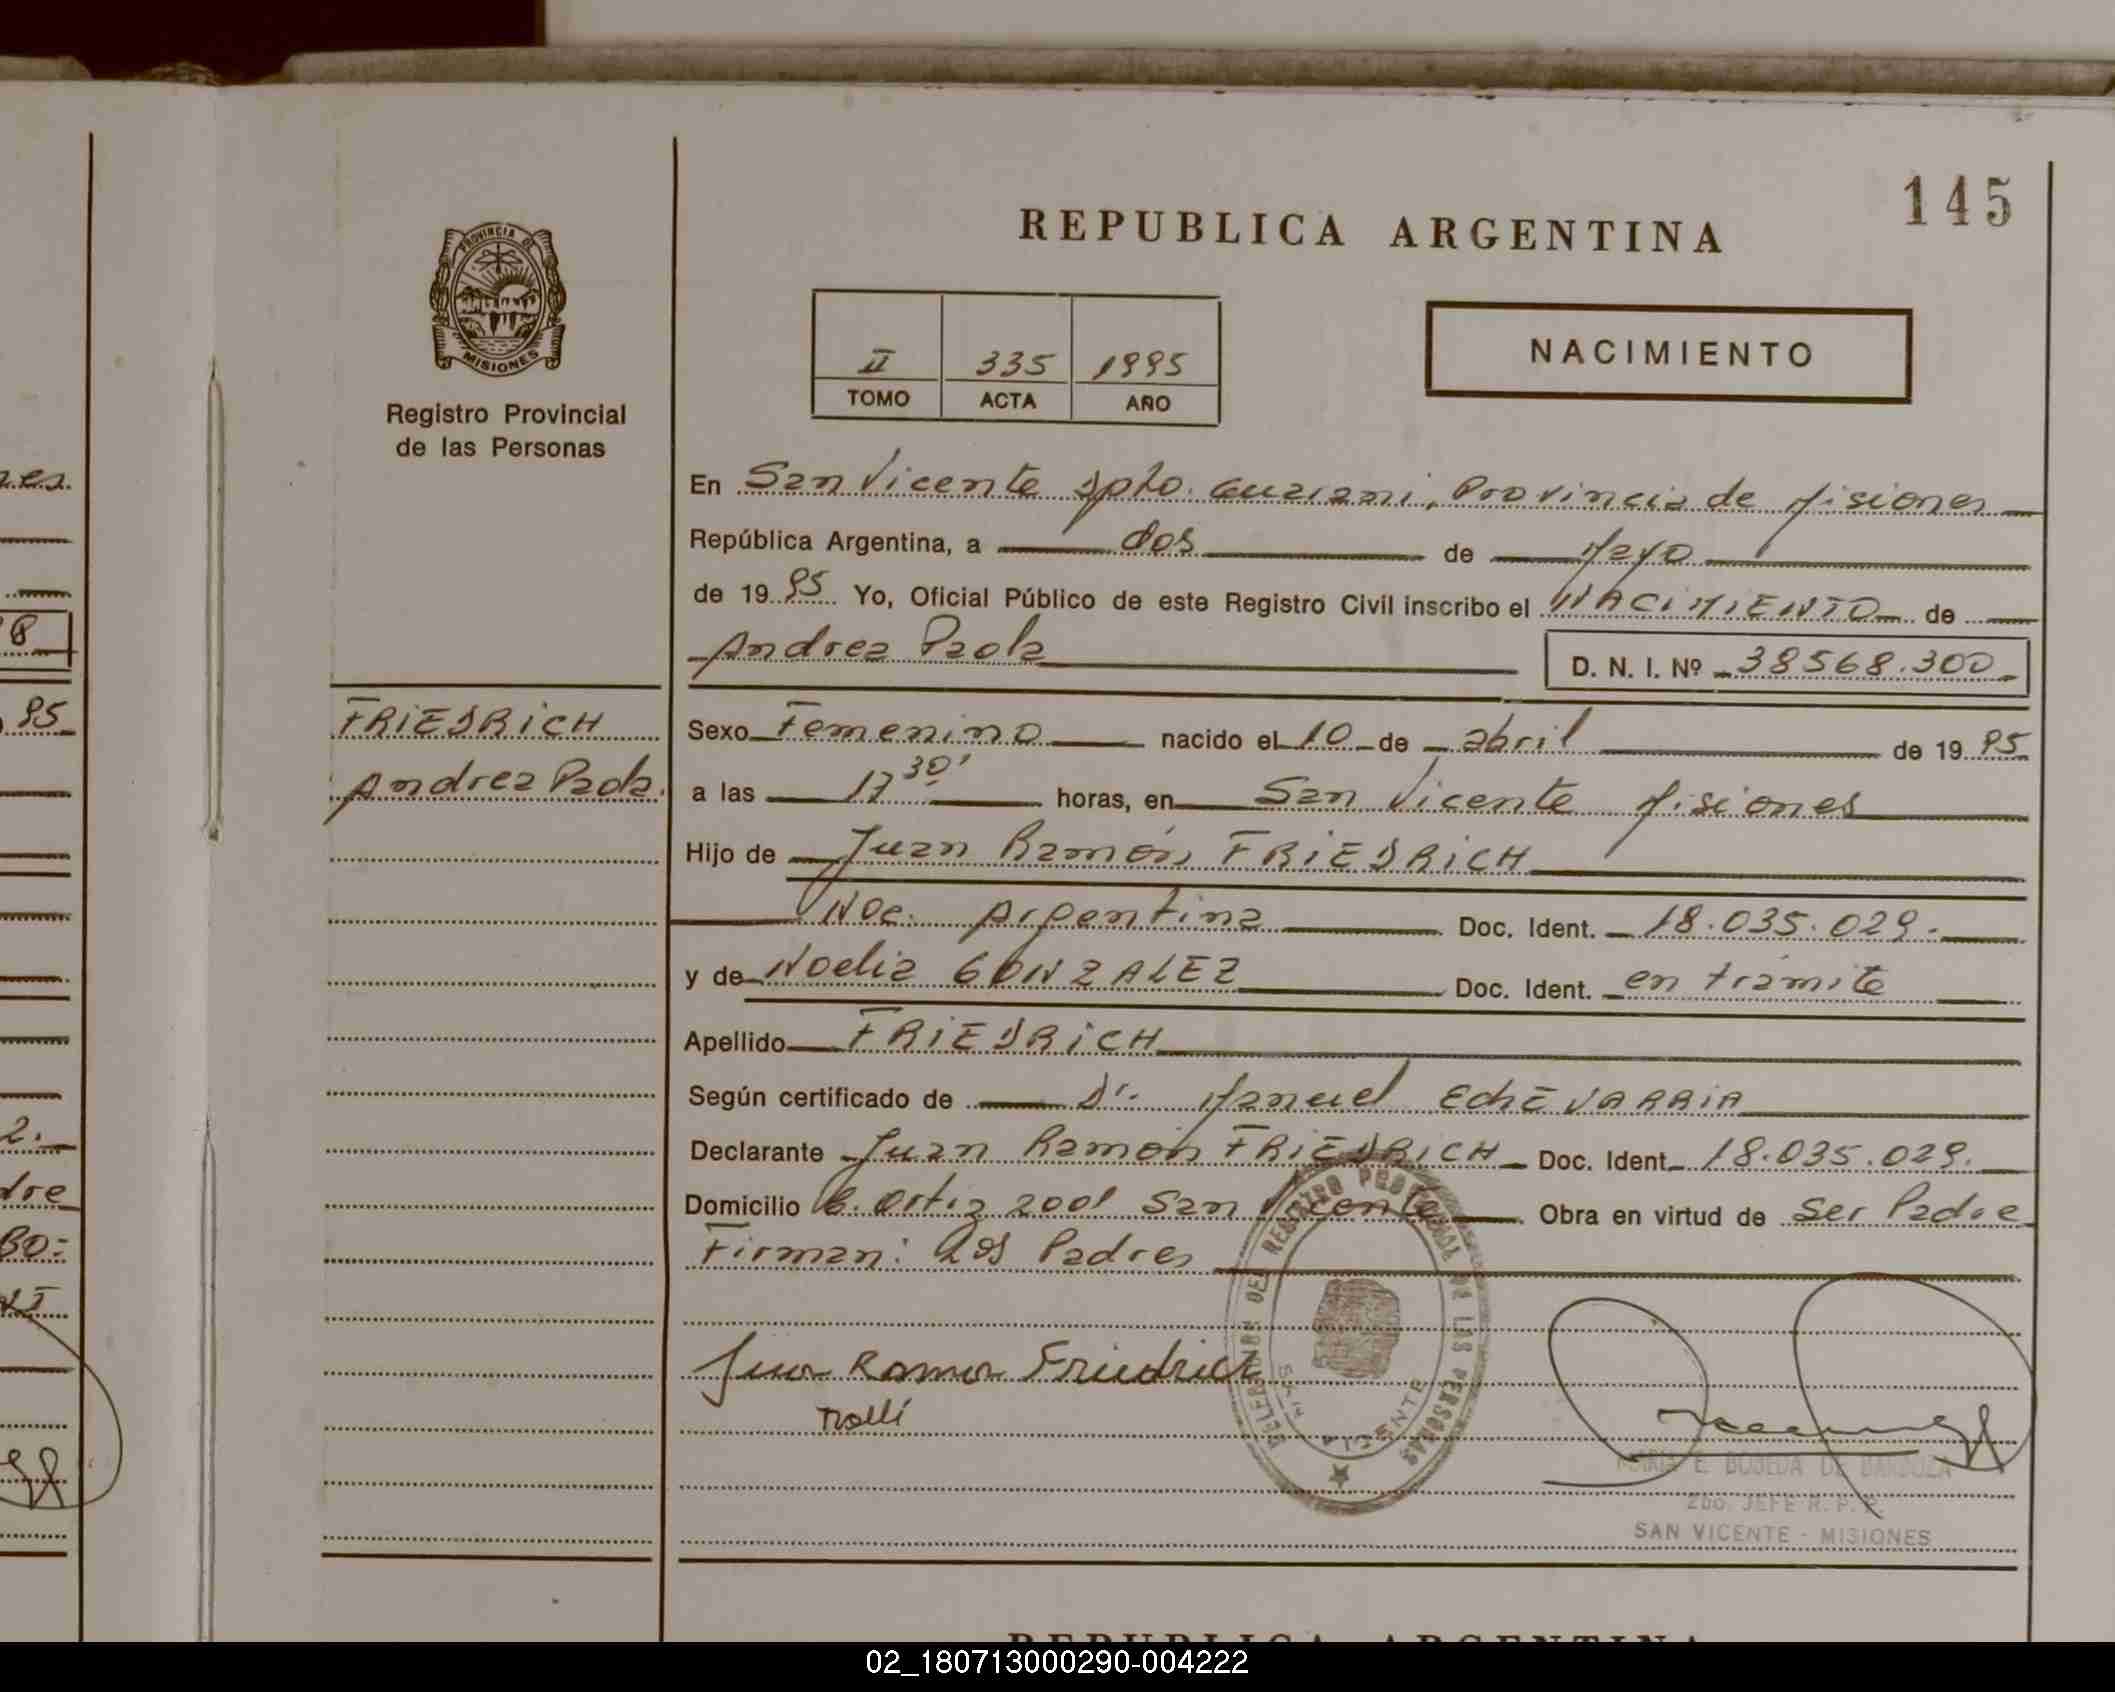 145
REPUBLICA ARGENTINA
PROVINCIA DE
MISIONES
Registro Provincial
de las Personas
II 335 1995
TOMO ACTA AÑO
NACIMIENTO
En San Vicente Dpto. Guarani, Provincia de Misiones
República Argentina, a dos de Mayo
de 1995 Yo, Oficial Público de este Registro Civil inscribo el NACIMIENTO de
Andrea Paola
D. N. I. Nº 38568.300
FRIEDRICH
Andrea Paola.
Sexo Femenino nacido el 10 de abril de 1995
a las 17 30' horas, en San Vicente Misiones
Hijo de Juan Ramón FRIEDRICH
Nac. Argentina Doc. Ident. 18.035.029.
y de Noelia GONZALEZ Doc. Ident. en trámite
Apellido FRIEDRICH
Según certificado de Dr. Manuel EchEVARRIA
Declarante Juan Ramón FRIEDRICH Doc. Ident. 18.035.029.
Domicilio C. Ortiz 2001 San Vicente Obra en virtud de Ser Padre
Firman: Los Padres
Juan Ramon Friedrich
DELEGACION DEL REGISTRO PROVINCIAL DE LAS PERSONAS
SAN VICENTE
MARIA E. BOBEDA DE BARBOZA
2do. JEFE R. P. P.
SAN VICENTE - MISIONES
REPUBLICA ARGENTINA
02_180713000290-004222